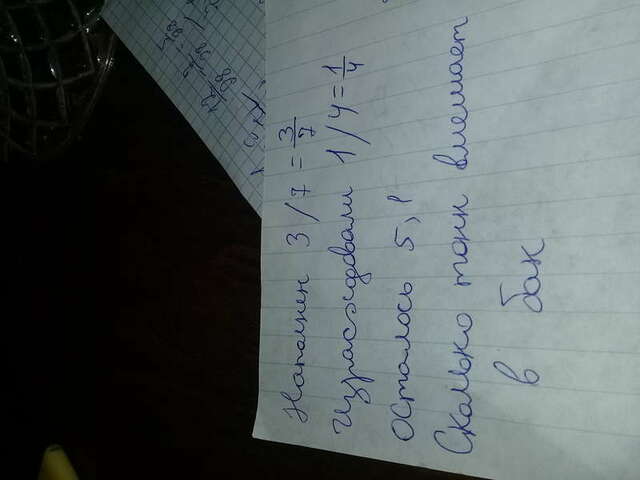 Наполнен 3/7 = 3/7
Израсходовали 1/4 = 1/4
Осталось 5,1
Сколько тонн вмещает
в бак